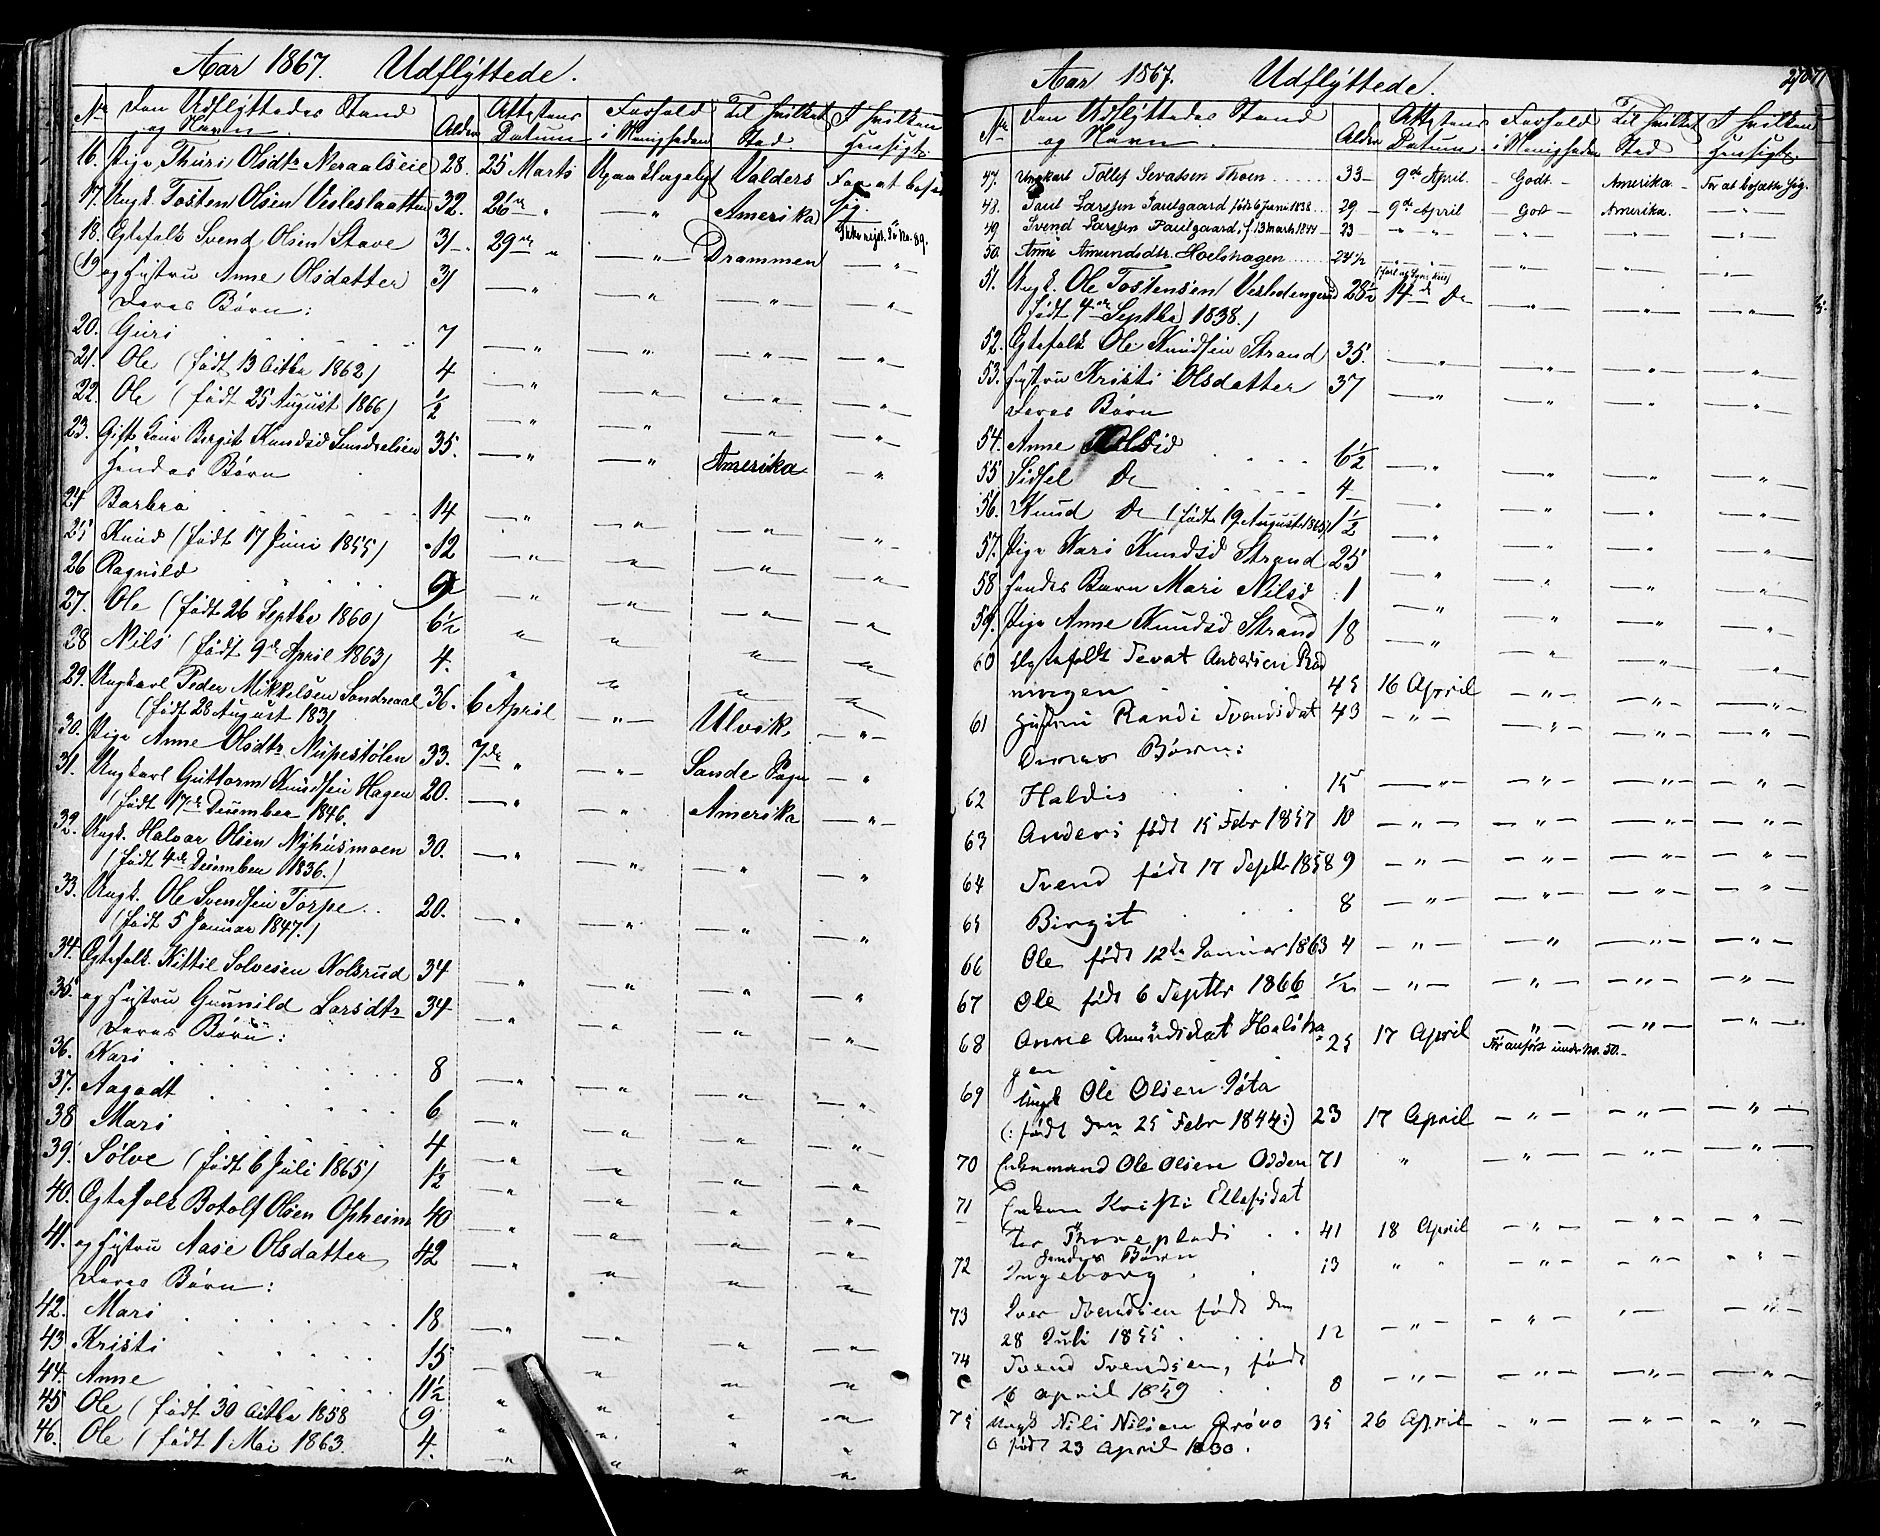 Aar 1867. Udflyttede.
No Den Udflyttedes Stand og Navn Alder Attestens Datum Forhold i Menigheden Til hvilket Sted I hvilken Hensigt
16. Pige Thuri Olsdtr Neraalseie 28. 25 Marts Valders For at bosætte sig.
17. Ungk. Tosten Olsen Vesleslaatten 32. 26de " — " Amerika — "
Ikke rejst. Se No. 89.
18. Egtefolk Svend Olsen Stave 31. 29de " — " Drammen — "
19 og Hystru Anne Olsdatter 31 — " — " — " — "
Deres Børn:
20. Guri 7 — " — " — " — "
21. Ole (født 13 Octbr 1862) 4 — " — " — " — "
22. Ole (født 25 August 1866) ½ — " — " — " — "
23. Gift Kone Bergit Knudsd 35. — " — " Amerika — "
Hendes Børn
24 Barbro 14 — " — " — " — "
25 Knud (født 17 Juni 1855) 12 — " — " — " — "
26 Ragnild 9 — " — " — " — "
27. Ole (født 26 Septbr 1860) 6½ " " — " — "
28 Nils (født 9de April 1863) 4. " " — " — "
29. Ungkarl Peder Mikkelsen Sandreaal 36. 6 April — " — Ulvik — " —
(født 28 August 1831
30. Pige Anne Olsdtr Nupestølen 33. 7de " — " — Sande Pgn — "
31. Ungkarl Guttorm Knudsen Hagen 20. — " " Amerika — " —
(født 17de December 1846.
32. Ungk. Halvor Olsen Nyhusmoen 30. — " " — " — "
(født 4de December 1836.)
33. Ungk. Ole Svendsen Torpe 20. — " — " — " — "
(født 5 Januar 1847.)
34. Egtefolk Kittil Solvesen Kolsrud 34 — " — " — " — "
35. og Hystru Gunnild Larsdtr 34 — " — " — " — "
Deres Børn:
36. Kari 8 — " — " — " — "
37. Aagodt 6 — " — " — " — "
38 Mari 4 — " — " — " — "
39. Sølve (født 6 Juli 1865) 1½ — " — " — " — "
40. Egtefolk Botolf Olsen Opheim 40 — " — " — " — "
41. og Hystru Aase Olsdatter 42 — " — " — " — "
Deres Børn:
42. Mari 18. — " — " — " — "
43 Kristi 15 — " — " — " — "
44. Anne 11½ " " — " — "
45 Ole (født 30 Octbr 1858 9. " " " — "
46. Ole (født 1 Mai 1863. 4. " " " "
Aar 1867. Udflyttede.
No Den Udflyttedes Stand og Navn Alder Attestens Datum Forhold i Menigheden Til hvilket Sted I hvilken Hensigt
47. Ungkarl Tollef Sevatsen Thoen 33 — 9de April — Godt — Amerika — For at bosætte Sig.
48. Paul Larssen Paulgaard født 6 Juni 1838 29 — 9de April — God — Amerika. — " —
49 Svend Larssen Paulgaard, f 13 marts 1844 23 — " " — " — " — "
50. Anne Amundsdtr. Hoelshagen 24½ — " — " — " — "
51. Ungk. Ole Tostensen 28½ 14de Do — " — " — "
født 4de Septbr 1838.)
52. Egtefolk Ole Knudsen Strand 35. — " — " — " — "
53. Hystru Kristi Olsdatter 37 — " — " — " — "
Deres Børn
54. Anne Olsd 6½ — " — " — " — "
55 Sidsel Do 4 — " — " — " — "
56. Knud Do (født 19 August 1865) 1½ — " — " — " — "
57. Pige Kari Knudsd Strand 25 — " — " — " — "
58 Hendes Barn Mari Nilsd 1 — " — " — " — "
59. Pige Anne Knudsd Strand 18 — " — " — " — "
60 Egtefolk Sevat Andersen
ningen 45 16 April — " — — " — — " —
61 Hustru Randi Svendsdat 43 — " — — " — — " — — " —
Deres Børn:
62 Haldis 15 — " — — " — — " — — " —
63 Anders født 15 Febr 1857 10 — " — — " — — " — — " —
64 Svend født 17 Septbr 1858 9 — " — — " — — " — — " —
65 Birgit 8 — " — — " — — " — — " —
66 Ole født 12te Januar 1863 4 — " — — " — — " — — " —
67 Ole født 6 Septbr 1866 ½ — " — — " — — " — — " —
68 Anne Amundsdat Hoelsha
gen 25 17 April — " — — " — — " —
Før anført under No. 50.
69 Ungk Ole Olsen
(: født den 25 Febr 1844:) 23 17 April — " — — " — — " —
70 Enkemand Ole Olsen Odden 71 " — " — — " — — " —
71 Enken Kristi Ellefsdat
ter 41 18 April — " — — " — — " —
Hendes Børn
72 Ingeborg 13 " " — " — — " — — " —
73 Iver Svendsen født den
28 Juli 1855 12 — " — — " — " — — " —
74 Svend Svendsen, født
16 april 1859 8 — " — — " — — " — — " —
75 Ungk Nils Nilsen Grøvo 35 26 April — " — — " — — " —
født 23 April 1830.